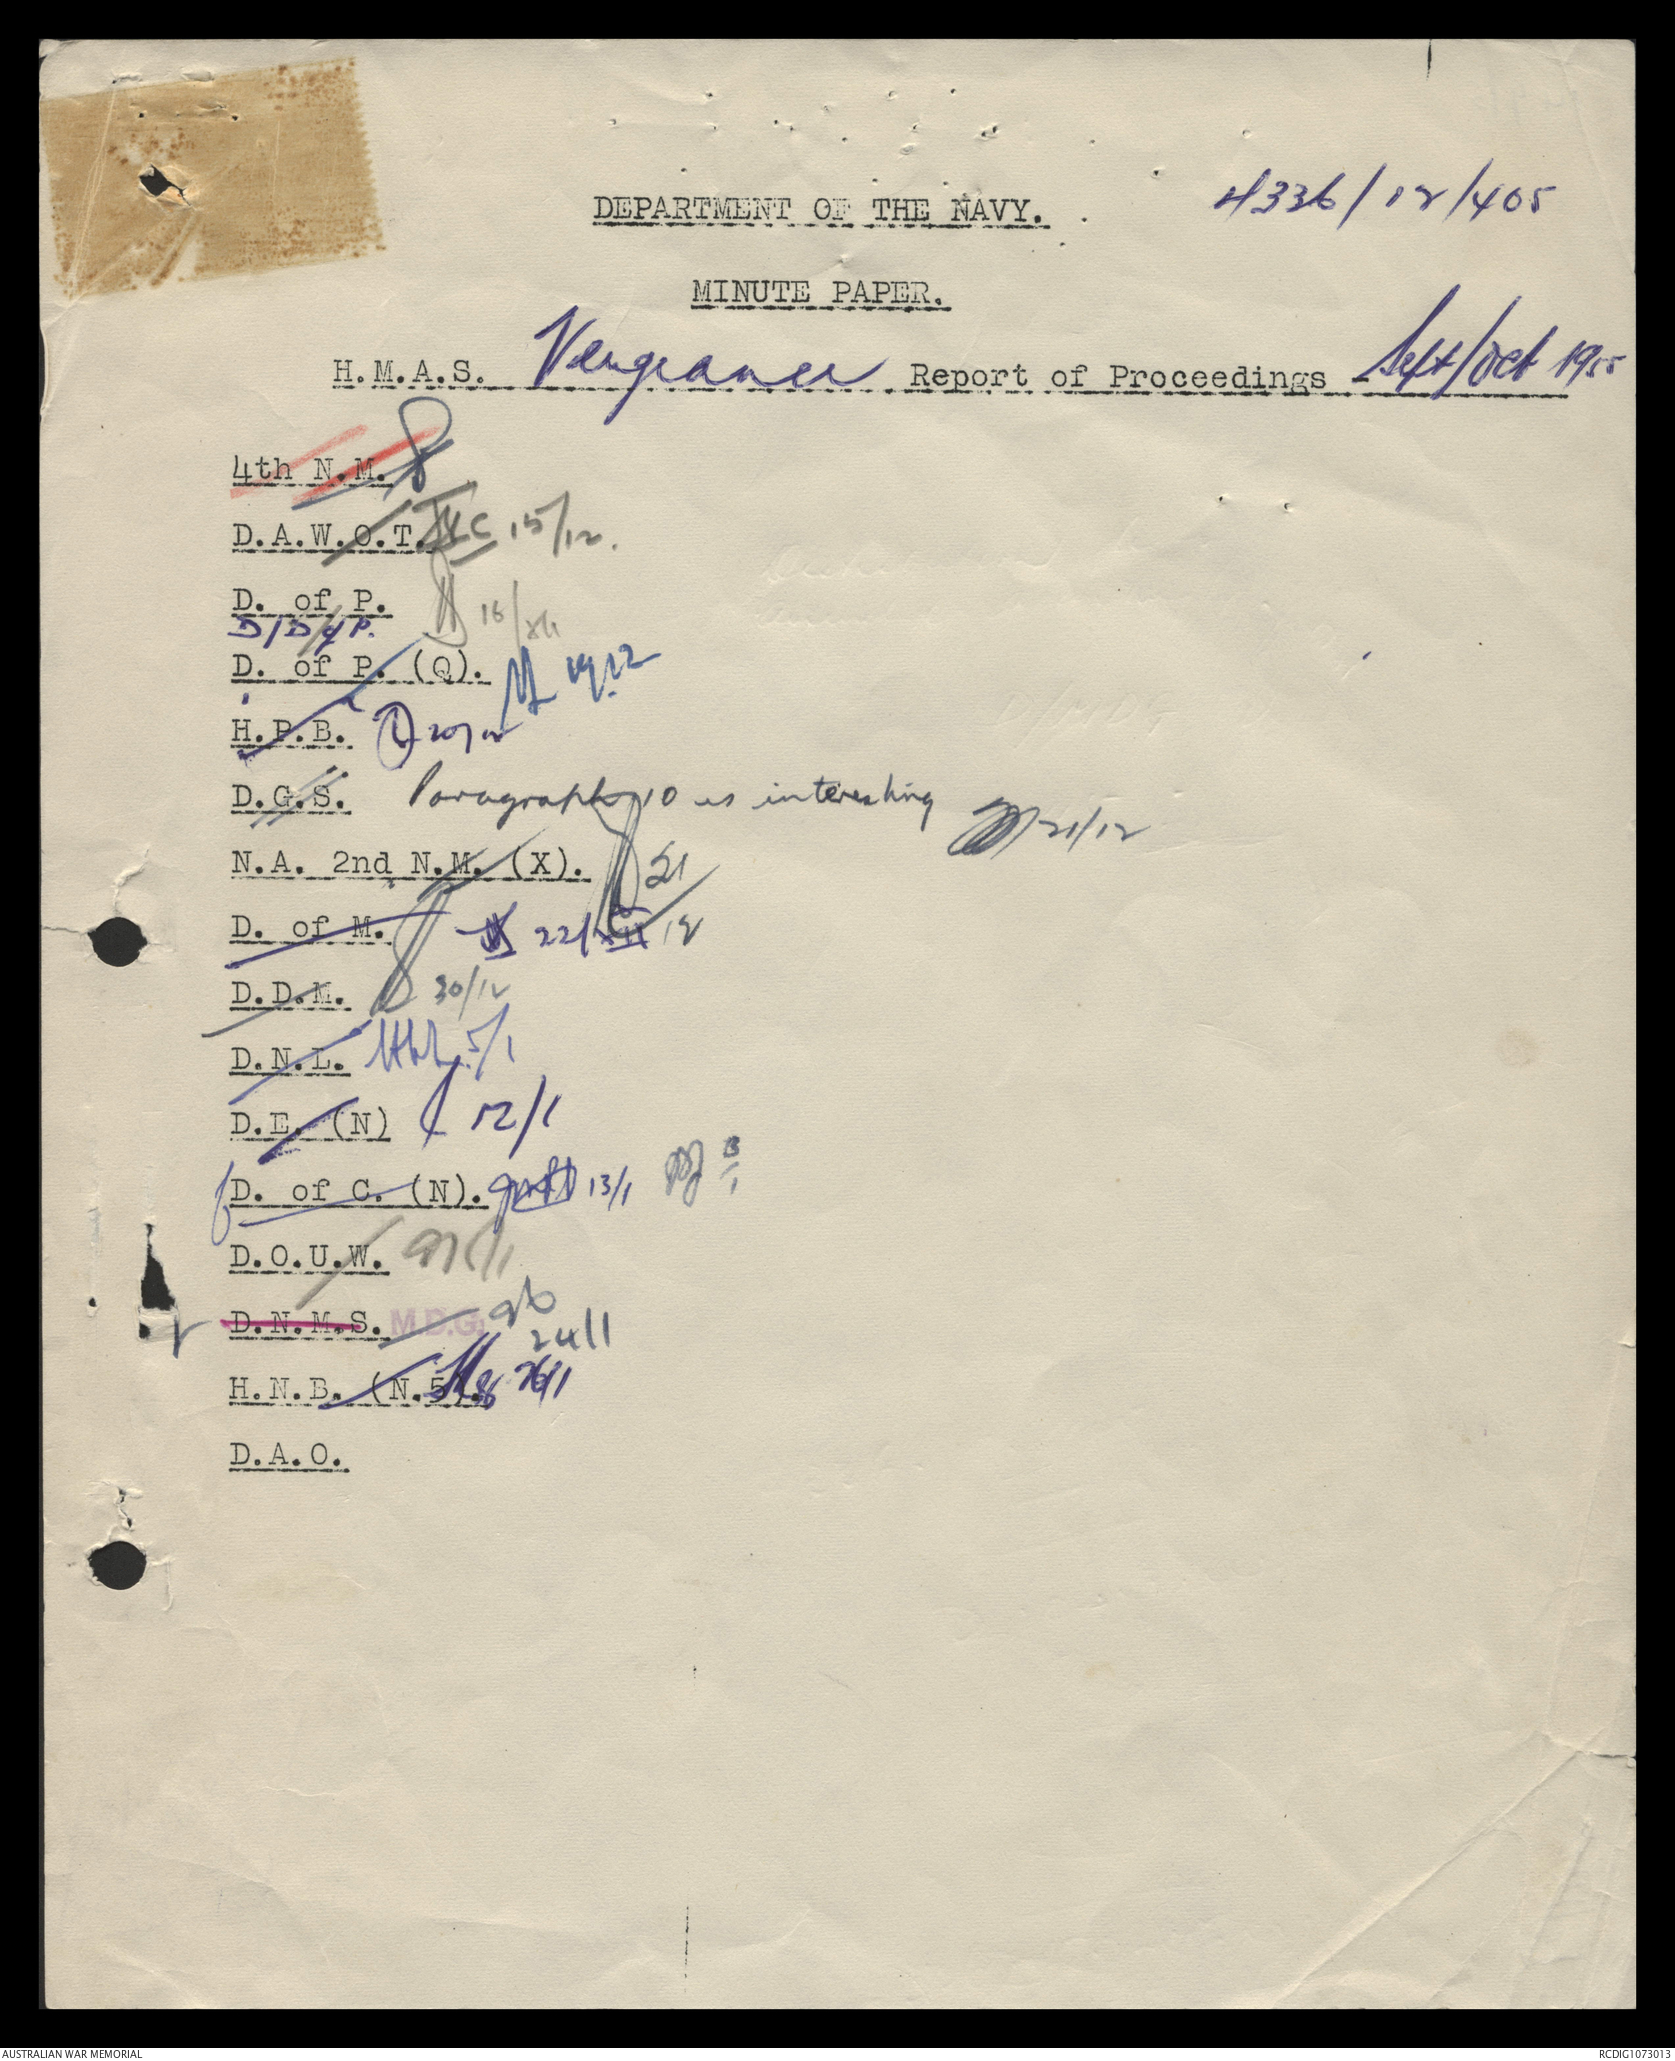 4336/12/405
DEPARTMENT OF THE NAVY.
MINUTE PAPER.
H.M.A.S. Vengeance Report of Proceedings - Sept/Oct 1955
4th N.M.
D.A.W.O.T. 15/12.
D. of P. 16/XII
D/D of P.
D. of P. (Q). 19.12
H.P.B. 20/12
D.G.S. Paragraph 10 is interesting 21/12
N.A. 2nd N.M. (X). 21/12
D. of M. 22/XII
D.D.M. 30/12
D.N.L. 5/1
D.E. (N) 12/1
D. of C. (N). 13/1 13/1
D.O.U.W.
D.N.M.S. M.D.G. 24/1
H.N.B. (N.5). 26/1
D.A.O.
AUSTRALIAN WAR MEMORIAL
RCDIG1073013